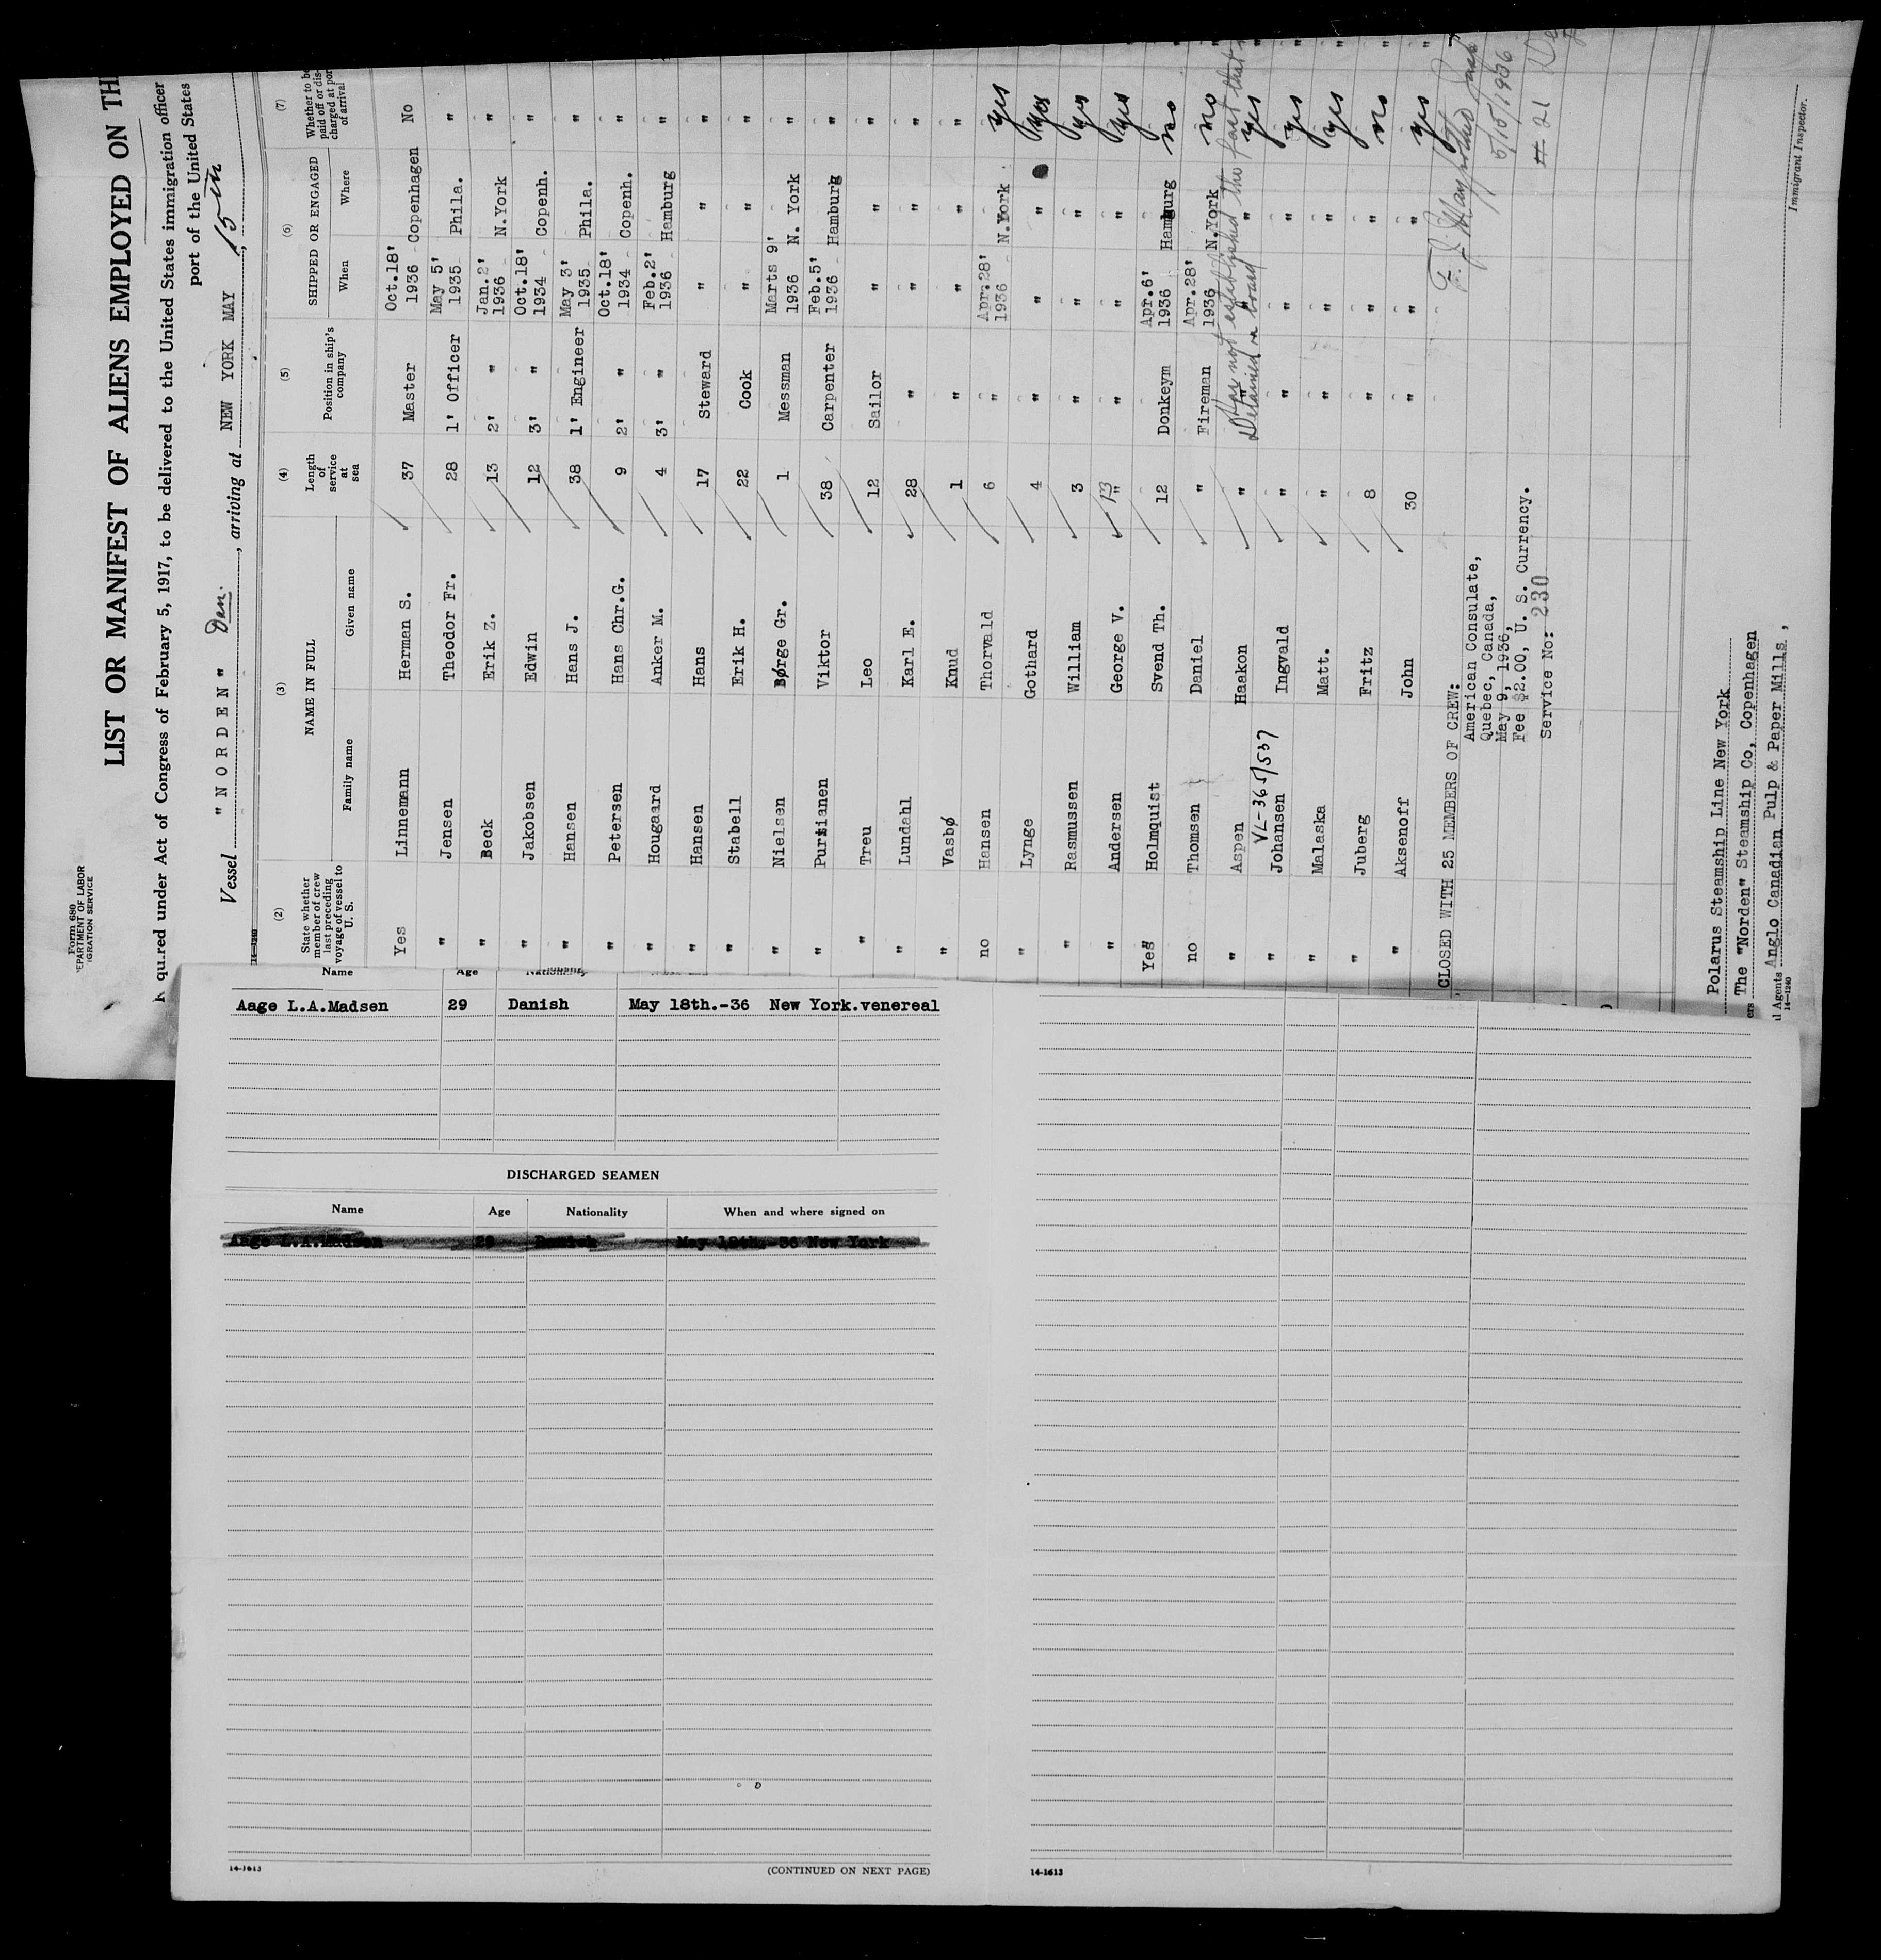 Form 680
EPARTMENT OF LABOR
IGRATION SERVICE
LIST OR MANIFEST OF ALIENS EMPLOYED ON TH
qu.red under Act of Congress of February 5, 1917, to be delivered to the United States immigration officer
port of the United States
Vessel "NORDEN" Dan. , arriving at NEW YORK MAY 15th
14-1240
(2) (3) (4) (5) (6) (7)
State whether member of crew last preceding voyage of vessel to U. S.
NAME IN FULL
Family name Given name
Length of service at sea
Position in ship's company
SHIPPED OR ENGAGED
When Where
Whether to be paid off or discharged at port of arrival
Yes Linnemann Herman S. 37 Master Oct.18' 1936 Copenhagen No
" Jensen Theodor Fr. 28 1' Officer May 5' 1935 Phila. "
" Beck Erik Z. 13 2' " Jan.2' 1936 N.York "
" Jakobsen Edwin 12 3' " Oct.18' 1934 Copenh. "
" Hansen Hans J. 38 1' Engineer May 3' 1935 Phila. "
" Petersen Hans Chr.G. 9 2' " Oct.18' 1934 Copenh. "
" Hougaard Anker M. 4 3' " Feb.2' 1936 Hamburg "
" Hansen Hans 17 Steward " " "
" Stabell Erik H. 22 Cook " " "
" Nielsen Børge Gr. 1 Messman Marts 9' 1936 N. York "
" Pursianen Viktor 38 Carpenter Feb.5' 1936 Hamburg "
" Treu Leo 12 Sailor " " "
" Lundahl Karl E. 28 " " " "
" Vasbø Knud 1 " " " "
no Hansen Thorvald 6 " Apr.28' 1936 N.York yes
" Lynge Gothard 4 " " " yes
" Rasmussen William 3 " " " yes
" Andersen George V. 13 " " " yes
Yes" Holmquist Svend Th. 12 Donkeym Apr.6' 1936 Hamburg no
no Thomsen Daniel " Fireman Apr.28' 1936 N.York no
" Aspen Haakon " " " " yes
VL-365/537
" Johansen Ingvald " " " " yes
" Malaska Matt. " " " " yes
" Juberg Fritz 8 " " " no
" Aksenoff John 30 " " " yes
Has not established the fact that
Detained on board
CLOSED WITH 25 MEMBERS OF CREW:
American Consulate,
Quebec, Canada,
May 9, 1936,
Fee $2.00, U. S. Currency.
Service No: 230
5/15/1936
# 21
Polarus Steamship Line New York
The "Norden" Steamship Co, Copenhagen
l Agents Anglo Canadian Pulp & Paper Mills ,
14-1240
Immigrant Inspector.
Name Age
Aage L.A.Madsen 29 Danish May 18th.-36 New York.venereal
DISCHARGED SEAMEN
Name Age Nationality When and where signed on
Aage L.A.Madsen 29 Danish May 18th. 36 New York
14-1613 (CONTINUED ON NEXT PAGE)
14-1613